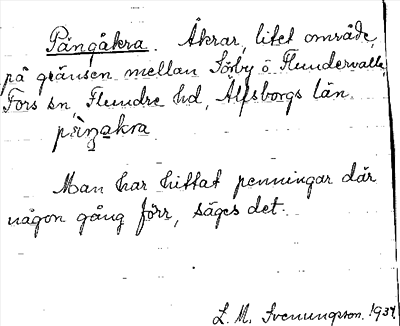 Pångåkra. Åkrar, litet område,
på gränsen mellan Sörby o. Flundervalla,
Fors sn, Flundre hd, Älfsborgs län.
Man har hittat penningar där
någon gång förr, säges det.
L. M. Svenungsson. 1934.